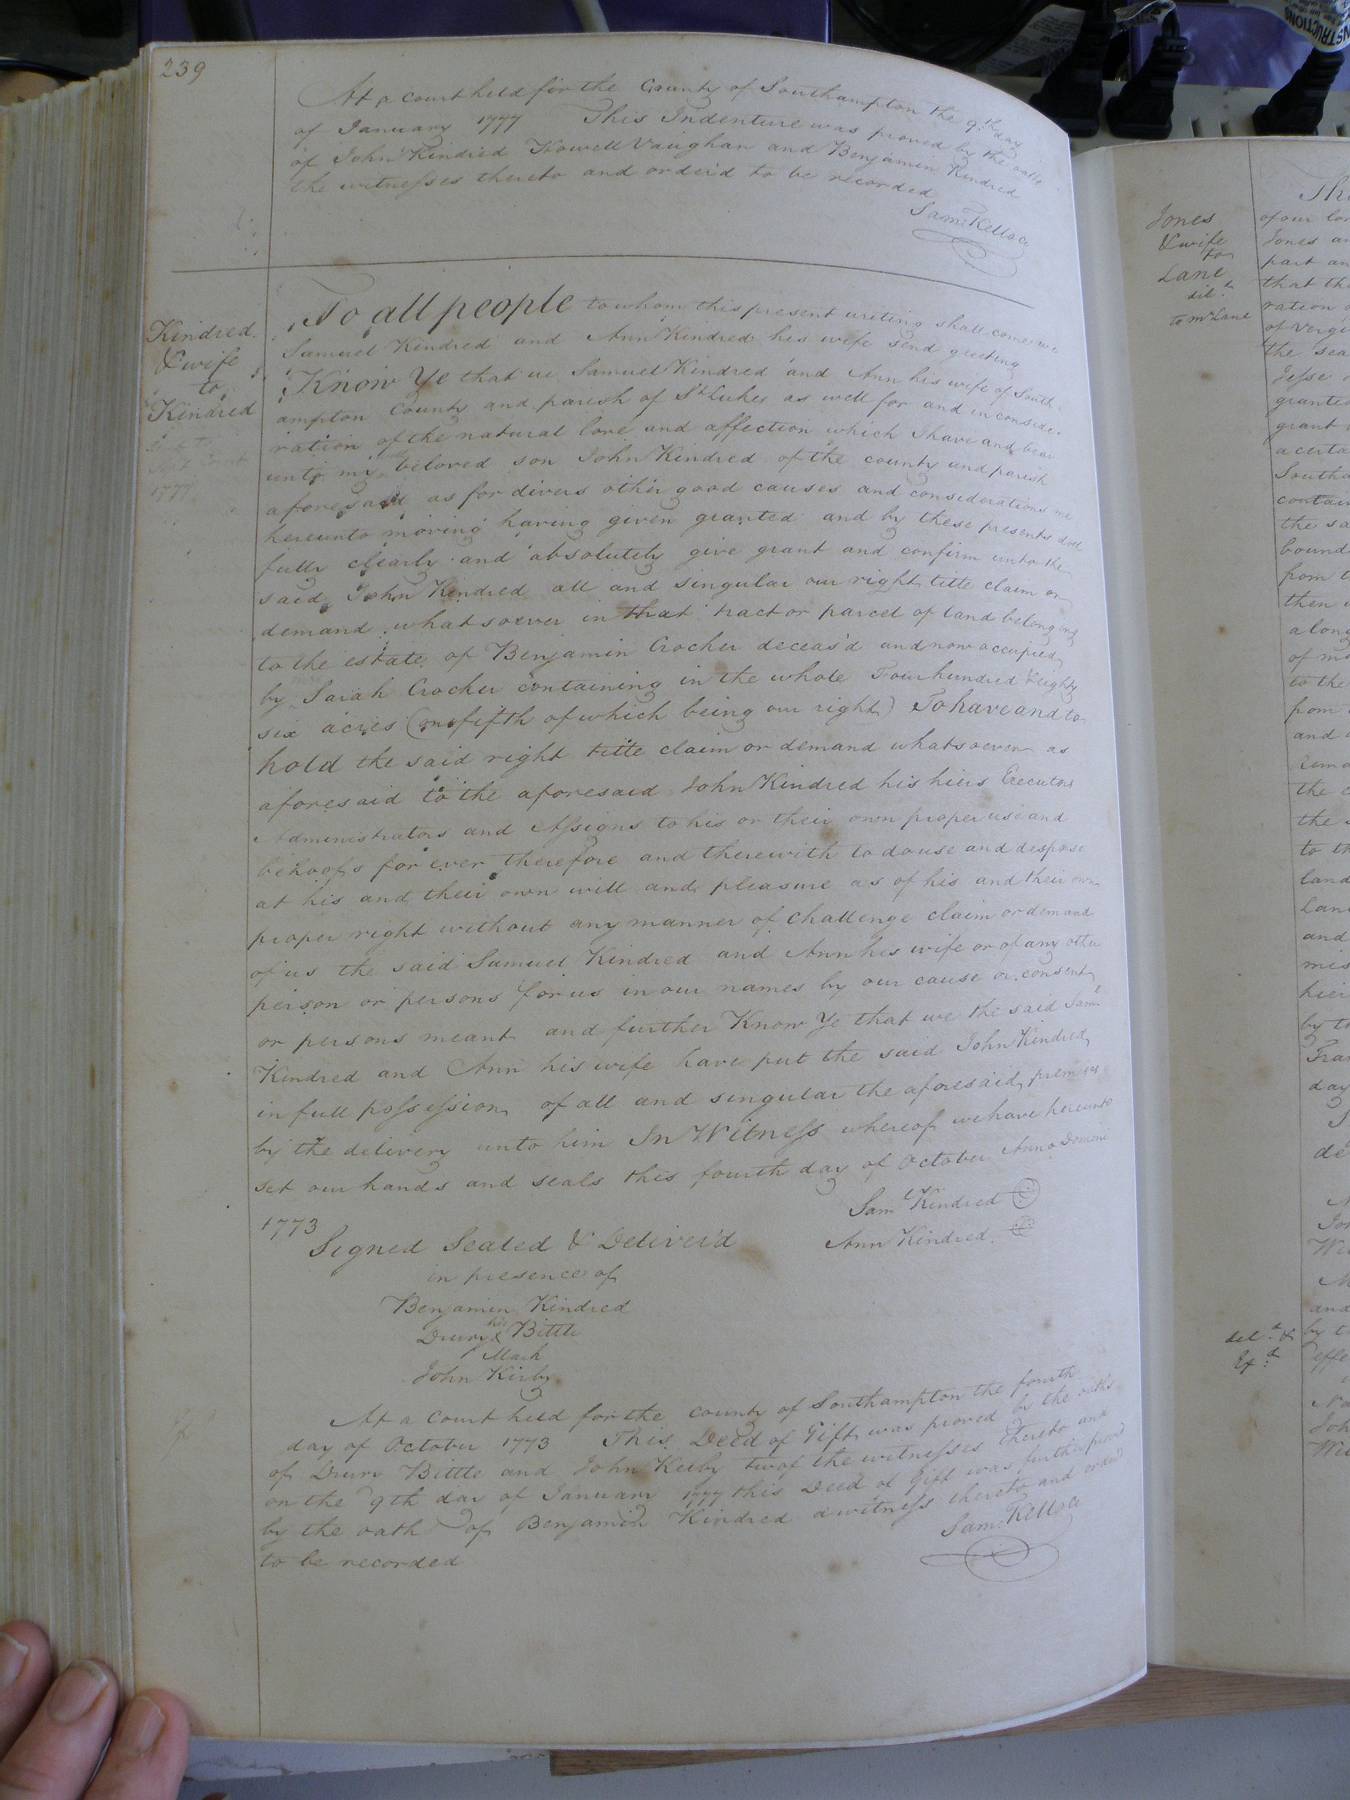 239
At a court held for the County of Southampton the 9th day
of January 1777 This Indenture was proved by the oaths
of John Kindred Howell Vaughan and Benjamin Kindred
the witnesses thereto and order'd to be recorded
Sam: Kello
Kindred
& wife
to
Kindred
1777
To all people to whom this present writing shall come we
Samuel Kindred and Ann Kindred his wife send greeting
Know Ye that we Samuel Kindred and Ann his wife of South-
ampton County and parish of St Lukes as well for and in conside-
ration of the natural love and affection which I have and bear
unto my beloved son John Kindred of the county and parish
aforesaid as for divers other good causes and considerations me
hereunto moving having given granted and by these presents do
fully clearly and absolutely give grant and confirm unto the
said John Kindred all and singular our right title claim or
demand whatsoever in that tract or parcel of land belonging
to the estate of Benjamin Crocker deceas'd and now occupied
by Sarah Crocker containing in the whole Four hundred & eighty
six acres (one fifth of which being our right) To have and to
hold the said right title claim or demand whatsoever as
aforesaid to the aforesaid John Kindred his hiers Executors
Administrators and Assigns to his or their own proper use and
behoofs for ever therefore and therewith to do use and despose
at his and their own will and pleasure as of his and their own
proper right without any manner of challenge claim or demand
of us the said Samuel Kindred and Ann his wife or of any other
person or persons for us in our names by our cause or consent
or persons meant and further Know Ye that we the said Saml
Kindred and Ann his wife have put the said John Kindred
in full possession of all and singular the aforesaid premises
by the delivery unto him In Witness whereof we have hereunto
set our hands and seals this fourth day of October Anno Domini
1773
Saml Kindred
Ann Kindred
Signed Sealed & Deliver'd
in presence of
Benjamin Kindred
his
Drury Bittle
Mark
John Kirby
At a Court held for the county of Southampton the fourth
day of October 1773 This Deed of Gift was proved by the oaths
of Drury Bittle and John Kerby two of the witnesses thereto and
on the 9th day of January 1777 this Deed of Gift was further proved
by the oath of Benjamin Kindred a witness thereto and order'd
to be recorded
Sam: Kello
Jones
& wife
to
Lane
del:d
to Mr Lane
of our
Jones
part an
that th
ration
of Virgi
the sea
Jesse
granted
grant
a certa
South
contain
the sa
bound
from t
then
along
of
to the
from
and
the
the
to th
land
Lan
and
hier
by t
day
del:d &
and
by t
effe